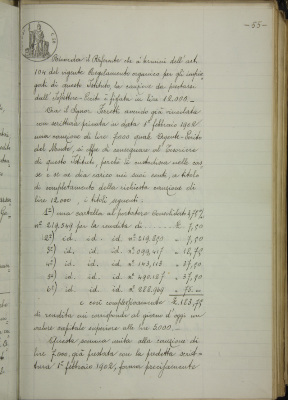 - 55 -
Osservato il Rosfrate che a' termini dell' art.
104 del vigente Regolamento organico per gli impie
gati di questo Istituto, la cauzione da prestarsi
dall' Ispettore Perito è fissata in Lire 12.000.-
Che il Signor avendo già vincolata
con scrittura privata in data 1° febbraio 1902
una cauzione di lire 7000 quale Perito
del Monte, si offre di consegnare al Tesoriere
di questo Istituto, perchè le introduca nelle cas
se e se ne dia carico nei suoi conti, a titolo
di completamento della richiesta cauzione di
lire 12.000, i titoli seguenti:
1°) una cartella al portatore Consolidato
n°. 219.349 per la rendita di £. 7,50
2°) id. id. id. n°. " 7,50
3°) id. id. id. n°. "
4°) id. id. id. n°. " 37,50
5°) id. id. id. n°. " 37,50
6°) id. id. id. n°. " 75.-
e così complessivamente £.
di rendita cui corrisponde al giorno d'oggi un
valore capitale superiore alle lire 5000.-
Questa somma unita alla cauzione di
lire 7.000, già prestata con la predetta scrit-
tura 1° febbraio 1902, forma precisamente